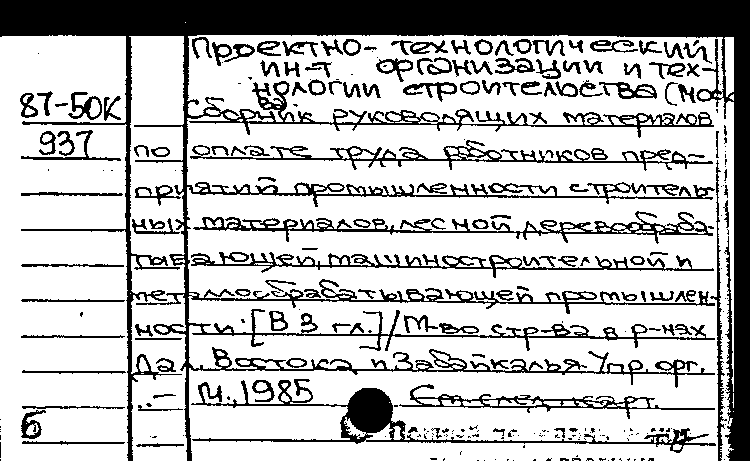 Проектно-технологический
ин-т организации и тех-
нологии строительства (Моск
ва).
87-50К Сборник руководящих материалов
937 по оплате труда работников пред-
приятий промышленности строитель-
ных материалов, лесной, деревообраба-
тывающей, машиностроительной и
металлообрабатывающей промышлен-
ности: [В 3 гл.] / М-во стр-ва в р-нах
Дал. Востока и Забайкалья. Упр. орг.
..– М., 1985 См. след. карт.
б